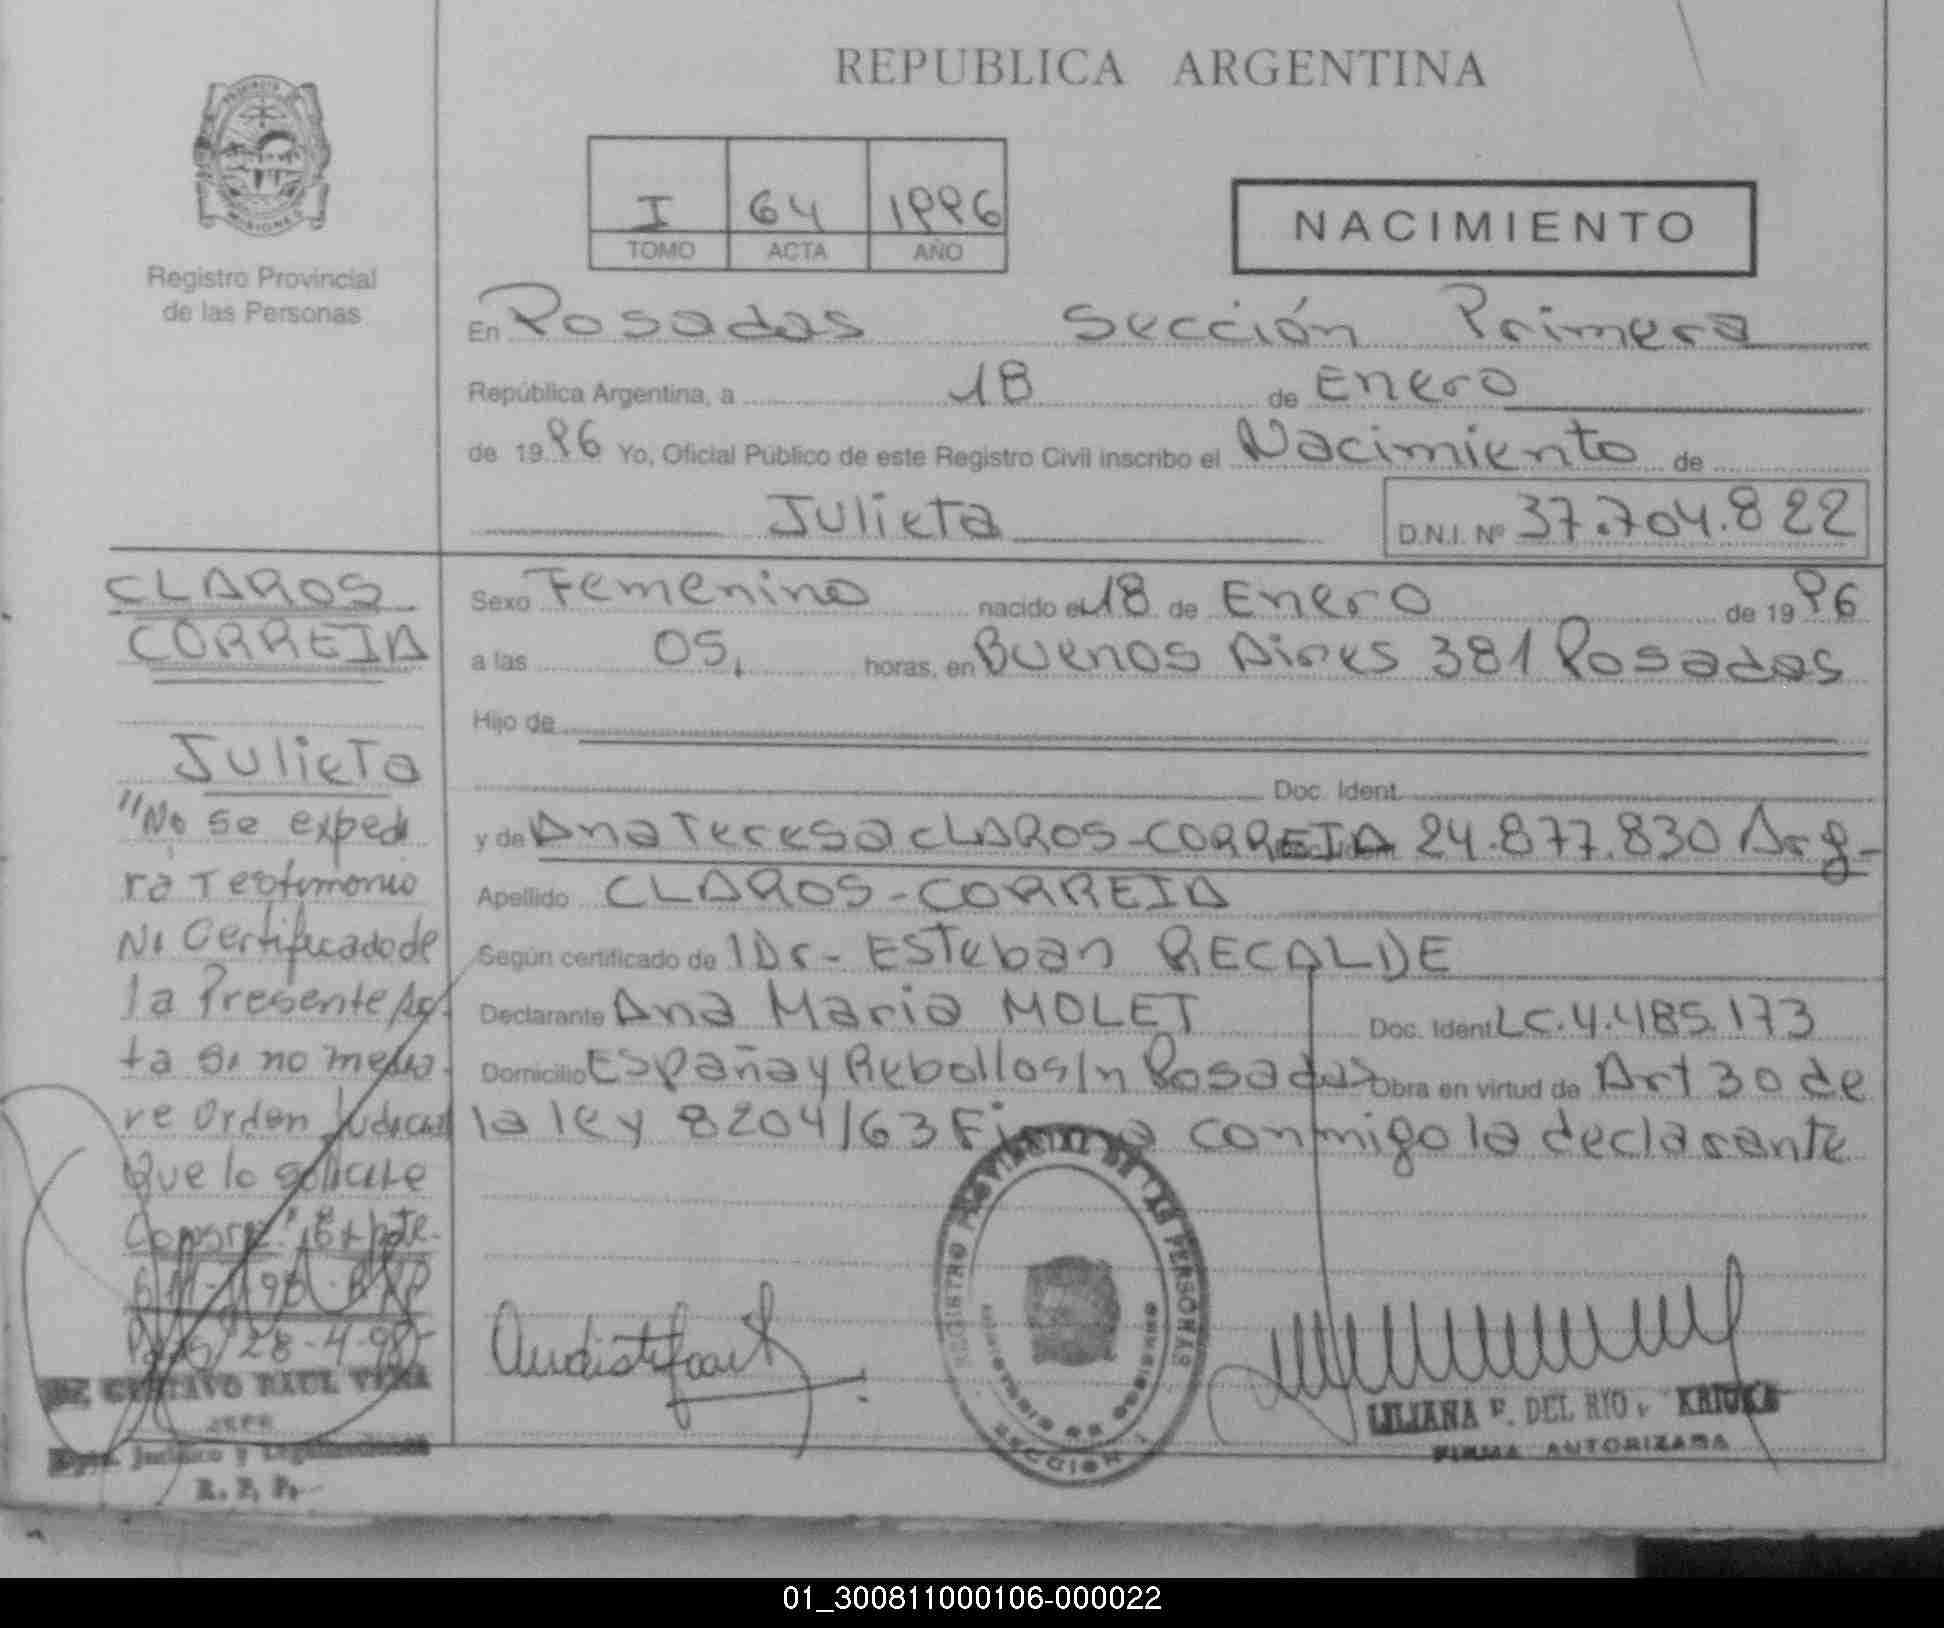 REPUBLICA ARGENTINA
PROVINCIA
MISIONES
Registro Provincial
de las Personas
I 64 1996
TOMO ACTA AÑO
NACIMIENTO
En Posadas Sección Primera
República Argentina, a 18 de Enero
de 1996 Yo, Oficial Público de este Registro Civil inscribo el Nacimiento de
Julieta D.N.I. Nº 37.704.822
CLAROS
CORREIA
Julieta
"No se expedi
rá Testimonio
Ni Certificado de
la Presente Ac-
ta si no media-
re Orden Judicial
Que lo solicite
28-4-98-
GUSTAVO RAUL VERA
JEFE
Dpto. Jurídico y
R. P. P.
Sexo Femenino nacido el 18 de Enero de 1996
a las 05, horas, en Buenos Aires 381 Posadas
Hijo de
Doc. Ident.
y de Ana Teresa CLAROS-CORREIA 24.877.830 Arg-
Apellido CLAROS-CORREIA
Según certificado de 1Dr- Esteban RECALDE
Declarante Ana Maria MOLET Doc. Ident LC.4.485.173
Domicilio España y Rebollo s/n Posadas Obra en virtud de Art 30 de
la ley 8204/63 Firma conmigo la declarante
REGISTRO PROVINCIAL DE LAS PERSONAS
SECCION 1
LILIANA F. DEL RIO
FIRMA AUTORIZADA
01_300811000106-000022